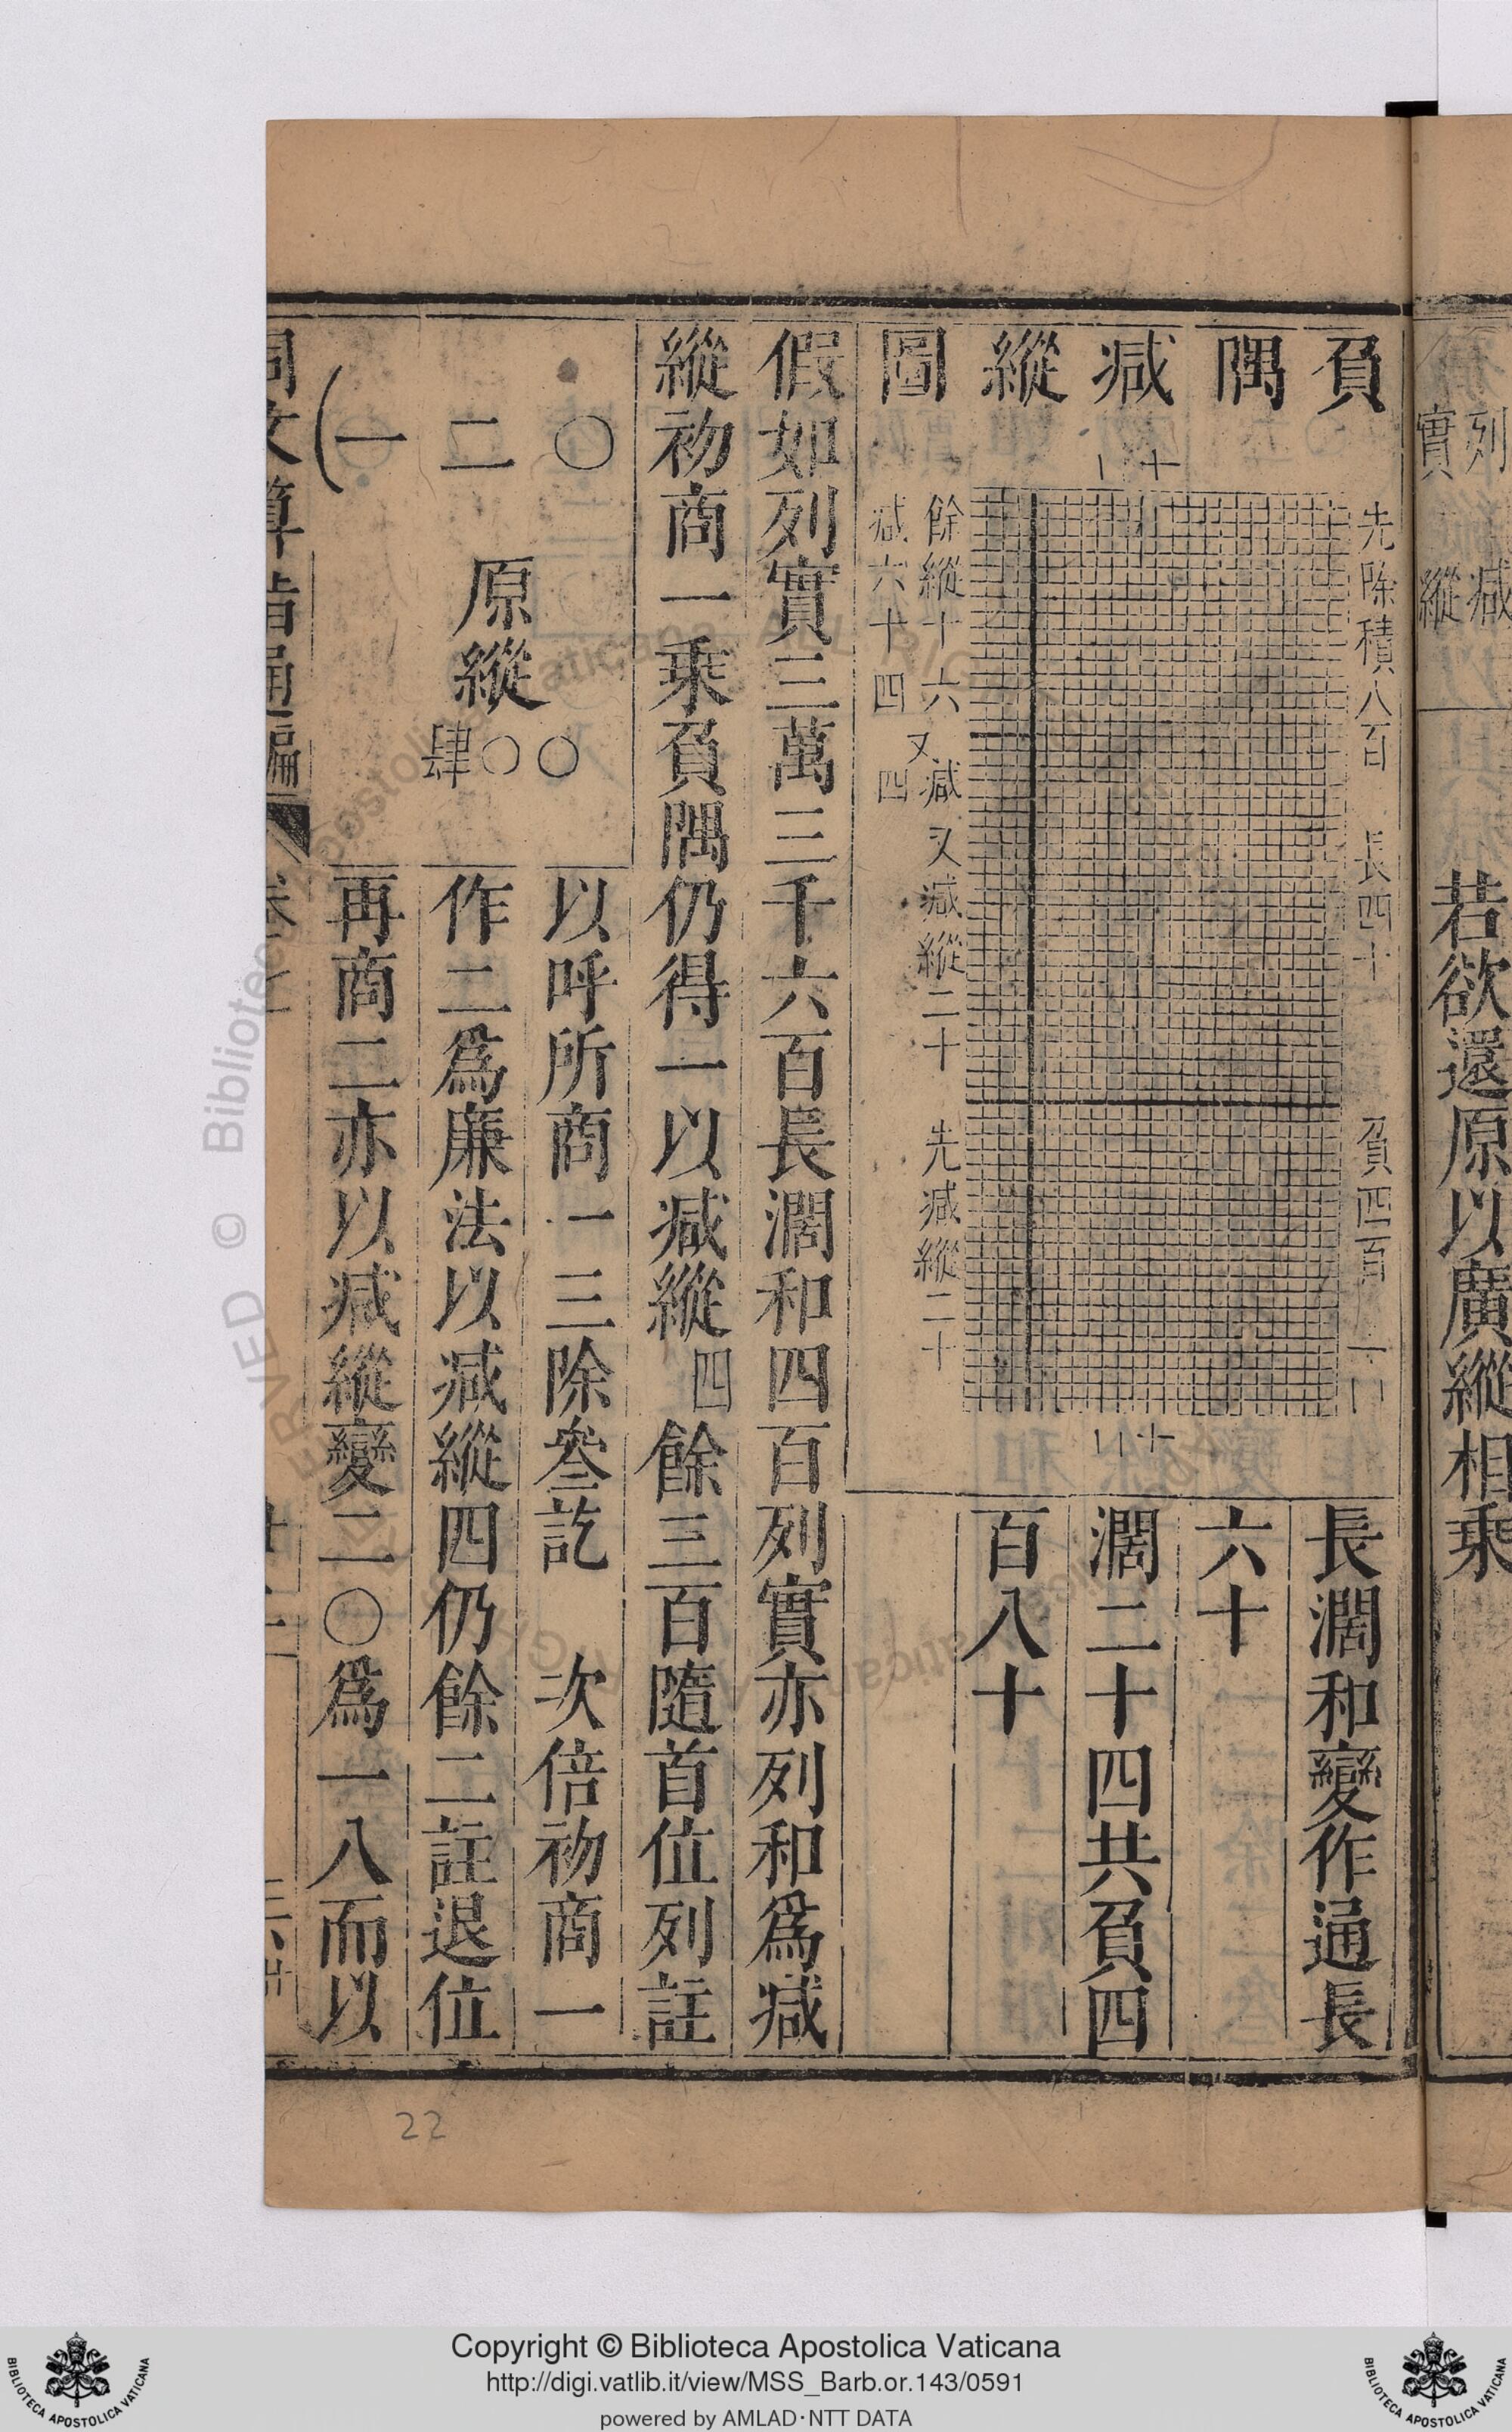 列
實
減
縱
若欲還原以廣縱相乘
負隅減縱圖
先除積八百 長四十 負四百
二十
十二
餘縱十六
減六十四
又減四
又減縱二十
先減縱二十
長濶和變作通長
六十
濶二十四共負四
百八十
假如列實三萬三千六百長濶和四百列實亦列和爲減
縱初商一乘負隅仍得一以減縱四餘三百隨首位列註
○
二
一
原縱
肆○○
以呼所商一三除叁訖 次倍初商一
作二爲廉法以減縱四仍餘二註退位
再商二亦以減縱變二○爲一八而以
同文算指通編
22
Biblioteca Apostolica Vaticana
Copyright © Biblioteca Apostolica Vaticana
http://digi.vatlib.it/view/MSS_Barb.or.143/0591
powered by AMLAD·NTT DATA
BIBLIOTECA APOSTOLICA VATICANA
BIBLIOTECA APOSTOLICA VATICANA